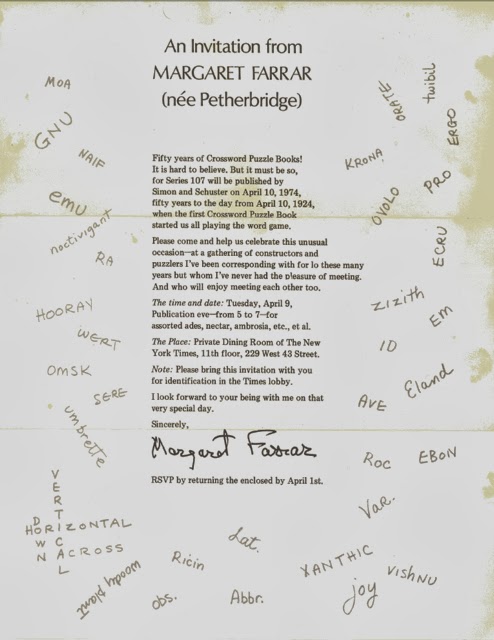 An Invitation from
MARGARET FARRAR
(née Petherbridge)
MOA
GNU
NAIF
emu
noctivigant
RA
HOORAY
WERT
OMSK
SERE
umbrette
ORATE
twibil
ERGO
KRONA
PRO
OVOLO
ECRU
zizith
Em
ID
Eland
AVE
Roc
EBON
Var.
Fifty years of Crossword Puzzle Books!
It is hard to believe. But it must be so,
for Series 107 will be published by
Simon and Schuster on April 10, 1974,
fifty years to the day from April 10, 1924,
when the first Crossword Puzzle Book
started us all playing the word game.
Please come and help us celebrate this unusual
occasion—at a gathering of constructors and
puzzlers I've been corresponding with for lo these many
years but whom I've never had the pleasure of meeting.
And who will enjoy meeting each other too.
The time and date: Tuesday, April 9,
Publication eve—from 5 to 7—for
assorted ades, nectar, ambrosia, etc., et al.
The Place: Private Dining Room of The New
York Times, 11th floor, 229 West 43 Street.
Note: Please bring this invitation with you
for identification in the Times lobby.
I look forward to your being with me on that
very special day.
Sincerely,
Margaret Farrar
RSVP by returning the enclosed by April 1st.
VERTICAL
HORIZONTAL
DOWN
ACROSS
woody plant
Ricin
obs.
Lat.
Abbr.
XANTHIC
Vishnu
joy